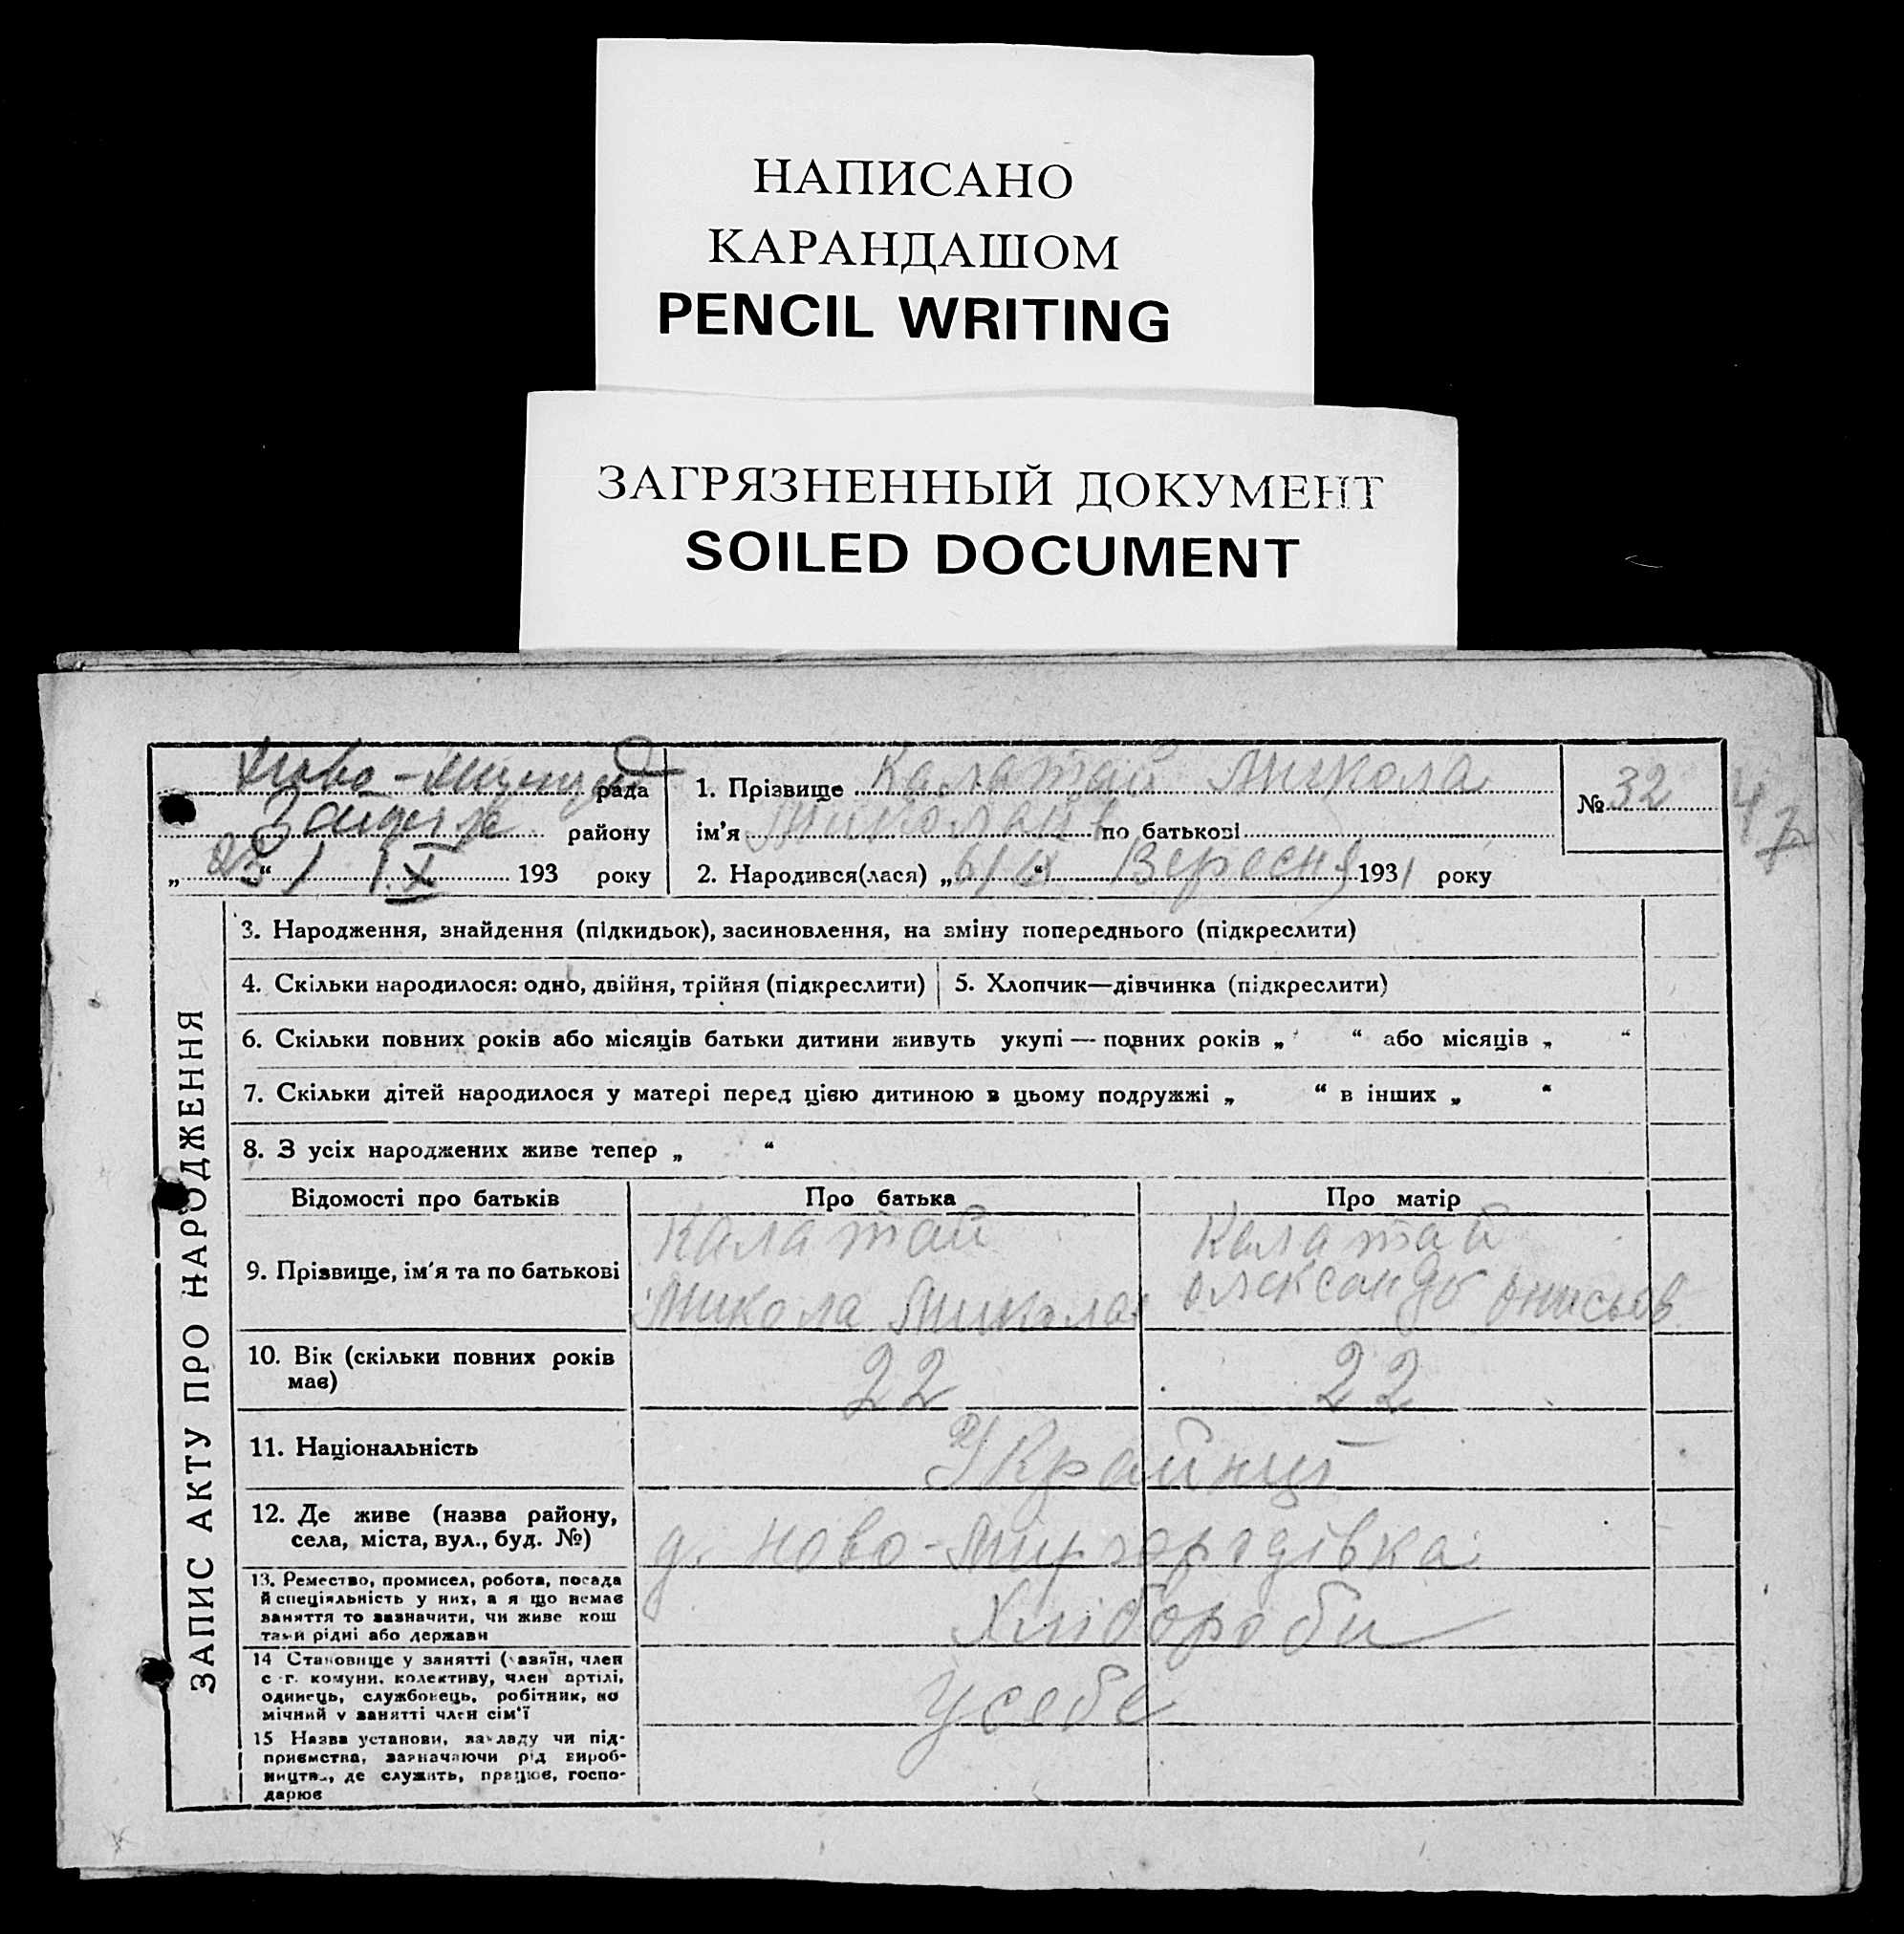 НАПИСАНО
КАРАНДАШОМ
PENCIL WRITING
ЗАГРЯЗНЕННЫЙ ДОКУМЕНТ
SOILED DOCUMENT
Ново- рада
району
„ 23 “ IX 193 року
1. Прізвище Калатай Микола
ім'я Миколаїв по батькові
2. Народився(лася) „ 6/ІХ “ Вересня 1931 року
№ 32
47
ЗАПИС АКТУ ПРО НАРОДЖЕННЯ
3. Народження, знайдення (підкидьок), засиновлення, на зміну попереднього (підкреслити)
4. Скільки народилося: одно, двійня, трійня (підкреслити) 5. Хлопчик—дівчинка (підкреслити)
6. Скільки повних років або місяців батьки дитини живуть укупі — повних років „ “ або місяців „ “
7. Скільки дітей народилося у матері перед цією дитиною в цьому подружжі „ “ в інших „ “
8. З усіх народжених живе тепер „ “
Відомості про батьків Про батька Про матір
9. Прізвище, ім'я та по батькові
Калатай
Микола Микола
Калатай
Олександ Онисьєв
10. Вік (скільки повних років
має)
22 22
11. Національність
Українці
12. Де живе (назва району,
села, міста, вул., буд. №)
д. Ново-Миргородівка
13. Ремество, промисел, робота, посада
й спеціяльність у них, а я що немає
заняття то зазначити, чи живе кош
тами рідні або держави
Хлібороби
14 Становище у занятті (хазяїн, член
с-г. комуни, колективу, член артілі,
одинець, службовець, робітник, по
мічний у занятті член сім'ї
У себе
15 Назва установи, закладу чи під-
приємства, зазначаючи рід вироб-
ництва, де служить, працює, госпо-
дарює